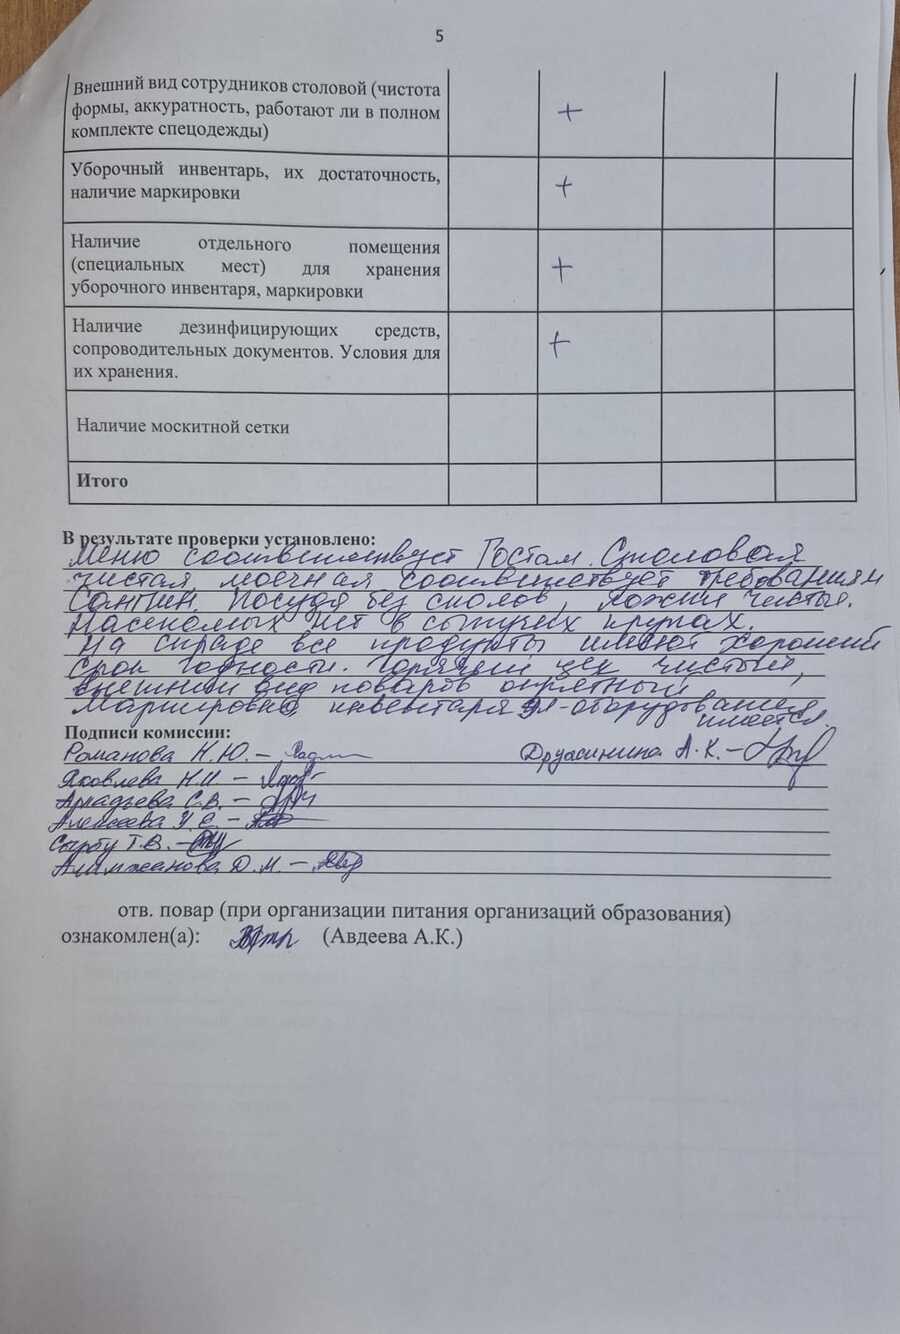 5
Внешний вид сотрудников столовой (чистота
формы, аккуратность, работают ли в полном +
комплекте спецодежды)
Уборочный инвентарь, их достаточность, +
наличие маркировки
Наличие отдельного помещения
(специальных мест) для хранения +
уборочного инвентаря, маркировки
Наличие дезинфицирующих средств, +
сопроводительных документов. Условия для
их хранения.
Наличие москитной сетки
Итого
В результате проверки установлено:
Меню соответствует Гостам. Столовая
чистая, моечная соответствует требованиям
Санпин. Посуда без сколов, ложки чистые.
Насекомых нет в сыпучих крупах.
На складе все продукты имеют хороший
срок годности. Горячий цех чистый,
внешний вид поваров опрятный
Маркировка инвентаря эл-оборудования
имеется.
Подписи комиссии:
Романова Н.Ю. – Дружинина А.К. –
Яковлева Н.И –
Аркадьева С.В. –
Алексеева У.С. –
Сырбу Т.В. –
Алимжанова Д.М. –
отв. повар (при организации питания организаций образования)
ознакомлен(а): (Авдеева А.К.)